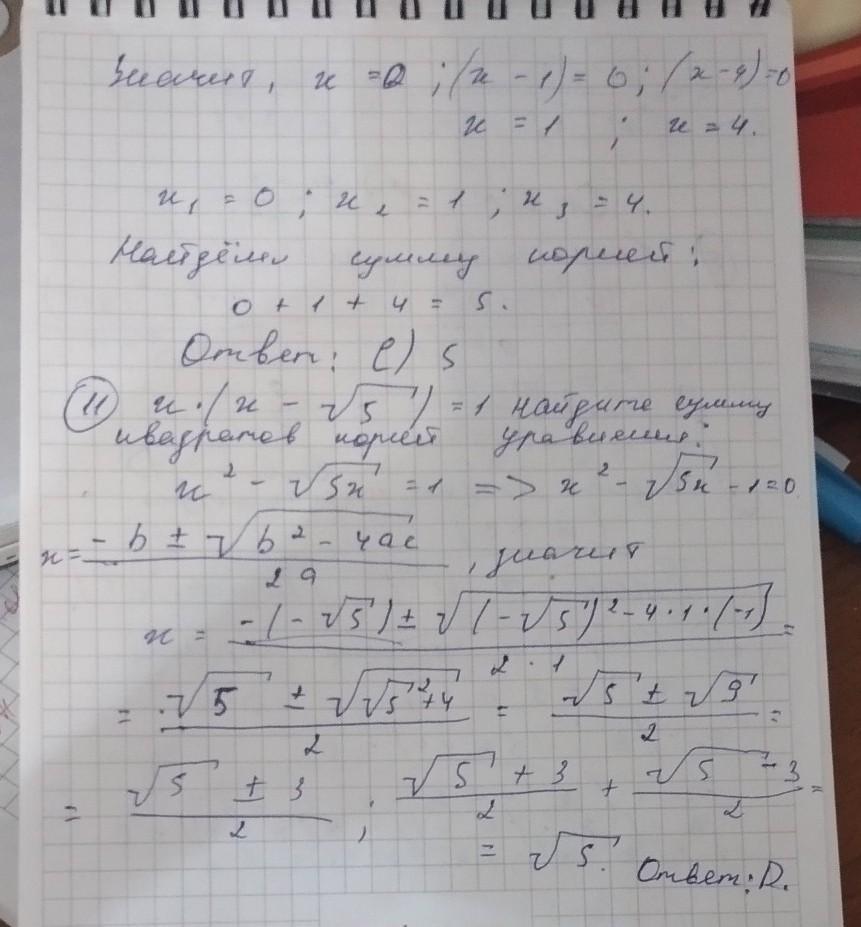 Значит, x = 0 ; (x - 1) = 0 ; (x - 4) = 0
x = 1 ; x = 4.
x₁ = 0 ; x₂ = 1 ; x₃ = 4.
Найдём сумму корней:
0 + 1 + 4 = 5.
Ответ: C) 5
11 x · (x - √5) = 1 найдите сумму
квадратов корней уравнения:
x² - √5x = 1 => x² - √5x - 1 = 0
x = (-b ± √(b² - 4ac)) / 2a , значит
x = (-(-√5) ± √((-√5)² - 4 · 1 · (-1))) / 2 · 1 =
= (√5 ± √(√5² + 4)) / 2 = (√5 ± √9) / 2 =
= (√5 ± 3) / 2 ; (√5 + 3) / 2 + (√5 - 3) / 2 =
= √5. Ответ: D.